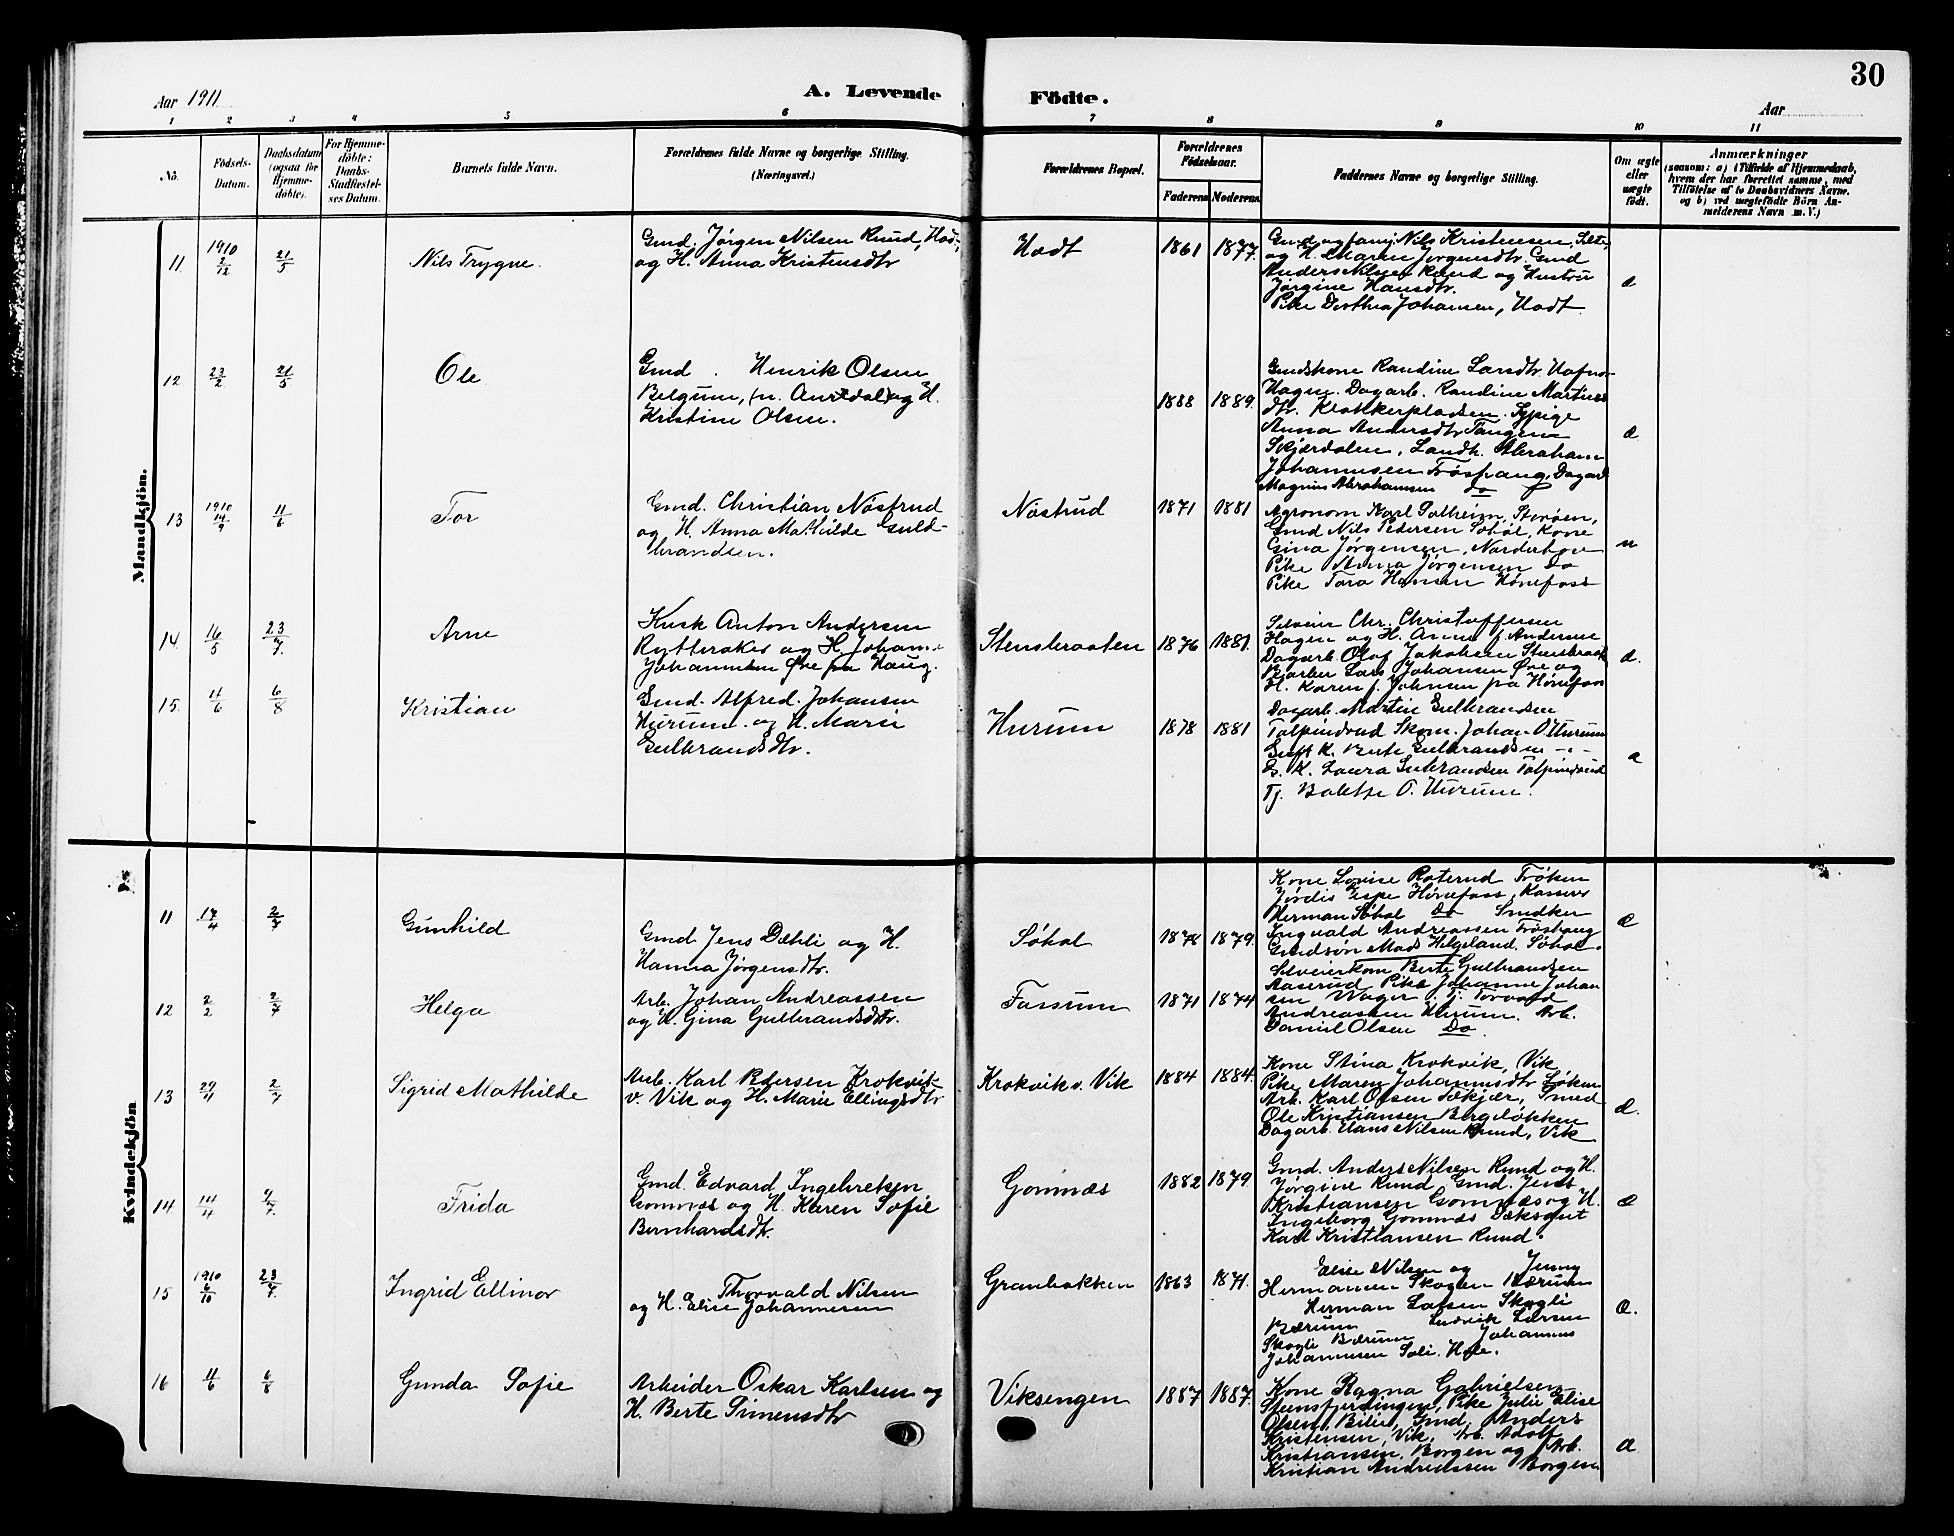 30
Aar 1911
A. Levende
Födte.
Aar
1 2 3 4 5 6 7 8 9 10 11
No.
Födsels-
Datum.
Daabsdatum
(ogsaa for
Hjemme-
döbte).
For Hjemme-
döbte:
Daabs-
Stadfæstel-
ses Datum.
Barnets fulde Navn.
Forældrenes fulde Navne og borgerlige Stilling.
(Næringsvei.)
Forældrenes Bopæl.
Forældrenes
Födselsaar.
Faderens Moderens
Faddernes Navne og borgerlige Stilling.
Om ægte
eller
uægte
födt.
Anmærkninger
(saasom: a) i Tilfælde af Hjemmedaab,
hvem der har forrettet samme, med
Tilföielse af to Daabsvidners Navne,
og b) ved uægtefödte Börn An-
melderens Navn m. V.)
Mandkjön.
11 1910 2/12 21/5 Nils Trygve.
Gmd. Jørgen Nilsen Rund,
og H. Anna Kristensdtr
1861 1877.
Gmd og Nils Kristensen,
og H. Maren Jørgensdtr. Gmd
Anders Nilsen Rund og Hustru
Jørgine Hansdtr.
Pike Dorthea Johansen,
12 23/2 21/5 Ole
Gmd. Henrik Olsen
Belgum, (n. Aurdal) og H.
Kristine Olsen.
1888 1889.
Gmdskone Randine Larsdtr
Dagarb. Randine
dtr. Klokkerpladsen. Sypige
Anna Andersdtr Tangen
Skjærdalen, Landh. Abraham
Johannesen Frøshaug, Dagarb
Magnus Abrahamsen do
13 1910 14/9 11/6 Tor
Gmd. Christian Nøstrud
og H. Anna Mathilde Guld-
brandsen.
Nøstrud 1871 1881
Agronom Karl Solheim, Storøen,
Gmd Nils Pedersen Søhol, Kone
Gina Jørgensen, Norderhov
Pike Anna Jørgensen Do
Pike Tora Hansen Hønefoss
14 16/5 23/7. Arne
Husk Anton Andersen
Rytteraker og H. Johan
Johannesen Øre pa Haug.
Stensbraaten 1876 1881.
Selveier Chr. Christoffersen
Hagen og H. Anne f. Andersen
Dagarb Olof Jakobsen
Lars Johansen Øre og
H. Karen f. Johnsen pa Hønefoss
15. 11/6 6/8 Kristian
Gmd. Alfred. Johansen
Hurum. og H. Marie
Gulbrandsdtr.
Hurum 1878 1881
Dagarb. Martin Gulbrandsen
Tolpinrud Skom. Johan O. Hurum
Gift K. Berte Gulbrandsen -"-
G. K. Laura Gulbrandsen Tolpinrud
Tj. O. Hurum.
Kvindekjön
11 17/4 2/7 Gunhild
Gmd. Jens Dæhli og H.
Hanna Jørgensdtr.
Søhol 1878 1879.
Kone Lovise Roterud Frøken
Jordis Hønefoss, Kasserer
Herman Søhol Do Snedker
Ingvald Andreassen Frøshaug
Gmdsøn Mads Helgeland. Søhol.
12 2/2 2/7 Helga
Arb. Johan Andreassen
og H. Gina Gulbrandsdtr.
Fossum 1871 1874
Selveierkone Berte Gulbrandsen
Aaserud Pike Johanne Johan
sen Wager. Tj. Torvald
Andreassen Hurum. Arb.
Daniel Olsen Do
13 29/4 2/7 Sigrid Mathilde
Arb. Karl Pedersen Krokvik
v. Vik og H. Marie Ellingsdtr
Krokvik v. Vik 1884 1884.
Kone Stina Krokvik, Vik
Pike Maren Johannesdtr Løken
Arb. Karl Olsen Smed
Ole Kristiansen Bergeløkken
Dagarb. Hans Nilsen Rund, Vik
14 14/4 9/7. Frida
Gmd. Edvard Ingebretsen
Gomnæs og H. Karen Sofie
Bernhardsdtr.
Gomnæs 1882 1879.
Gmd. Anders Nilsen Rund og H.
Jørgine Rund Gmd. Jens
Kristiansen Gomnæs og H.
Ingeborg Gomnæs Dæksgut
Karl Kristiansen Rund.
15 1910 6/10 23/7. Ingrid Ellinor
Thorvald Nilsen
og H. Elise Johannesen
Granbakken 1863 1871.
Elise Nilsen og Jenny
Hermansen Skoglie Bærum
Herman Larsen Skogli
Bærum Ludvik Larsen
Skogli Bærum Johannes
Johannesen Soli. Hole.
16 11/6 6/8 Gunda Sofie
Arbeider Oskar Karlsen og
H. Berte Simensdtr
Viksengen 1887 1887.
Kone Ragna Gabrielsen
Steensfjerdingen, Pike Julie Elise
Olsen, Bili, Gmd. Anders
Kristensen, Vik, Arb. Adolf
Kristiansen, Borgen og Arb.
Kristian Andreassen Borgen